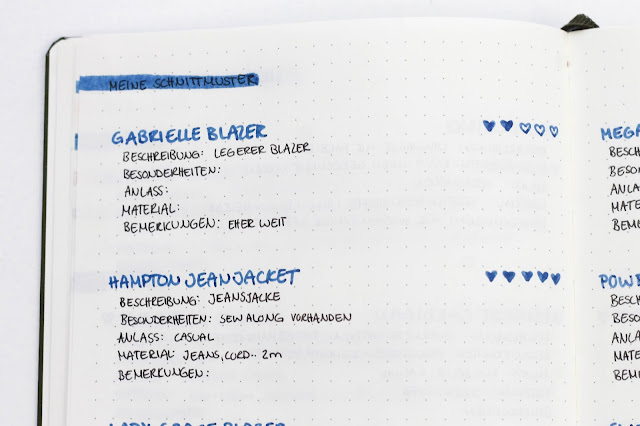 MEINE SCHNITTMUSTER
GABRIELLE BLAZER
BESCHREIBUNG: LEGERER BLAZER
BESONDERHEITEN:
ANLASS:
MATERIAL:
BEMERKUNGEN: EHER WEIT
HAMPTON JEANJACKET
BESCHREIBUNG: JEANSJACKE
BESONDERHEITEN: SEW ALONG VORHANDEN
ANLASS: CASUAL
MATERIAL: JEANS, CORD.. 2m
BEMERKUNGEN:
LADY GRACE BLAZER
MEGA
BESCH
BESO
ANLA
MATE
BEM
POWE
BESCH
BESO
ANLA
MATE
BEM